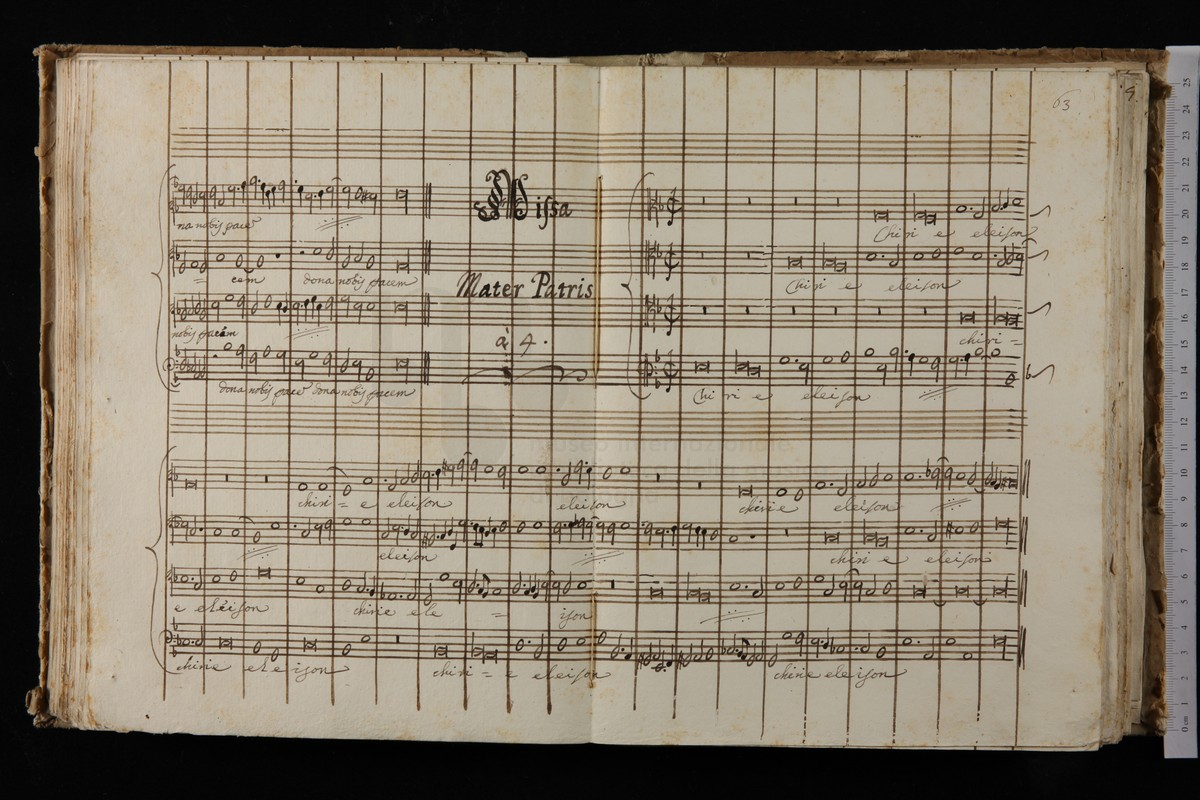 63
9.
na nobis pacē
= cem dona nobis pacem
nobis pacem
dona nobis pacē dona nobis pacem
Missa
Mater Patris
à 4.
Chiri e eleison
Chiri e eleison
chiri =
Chi ri e eleison
chiri = e eleison eleison chirie eleison
eleison chiri e eleison
e eleison chirie ele = ison
chirie eleison chiri = e eleison chirie eleison
museo internazionale